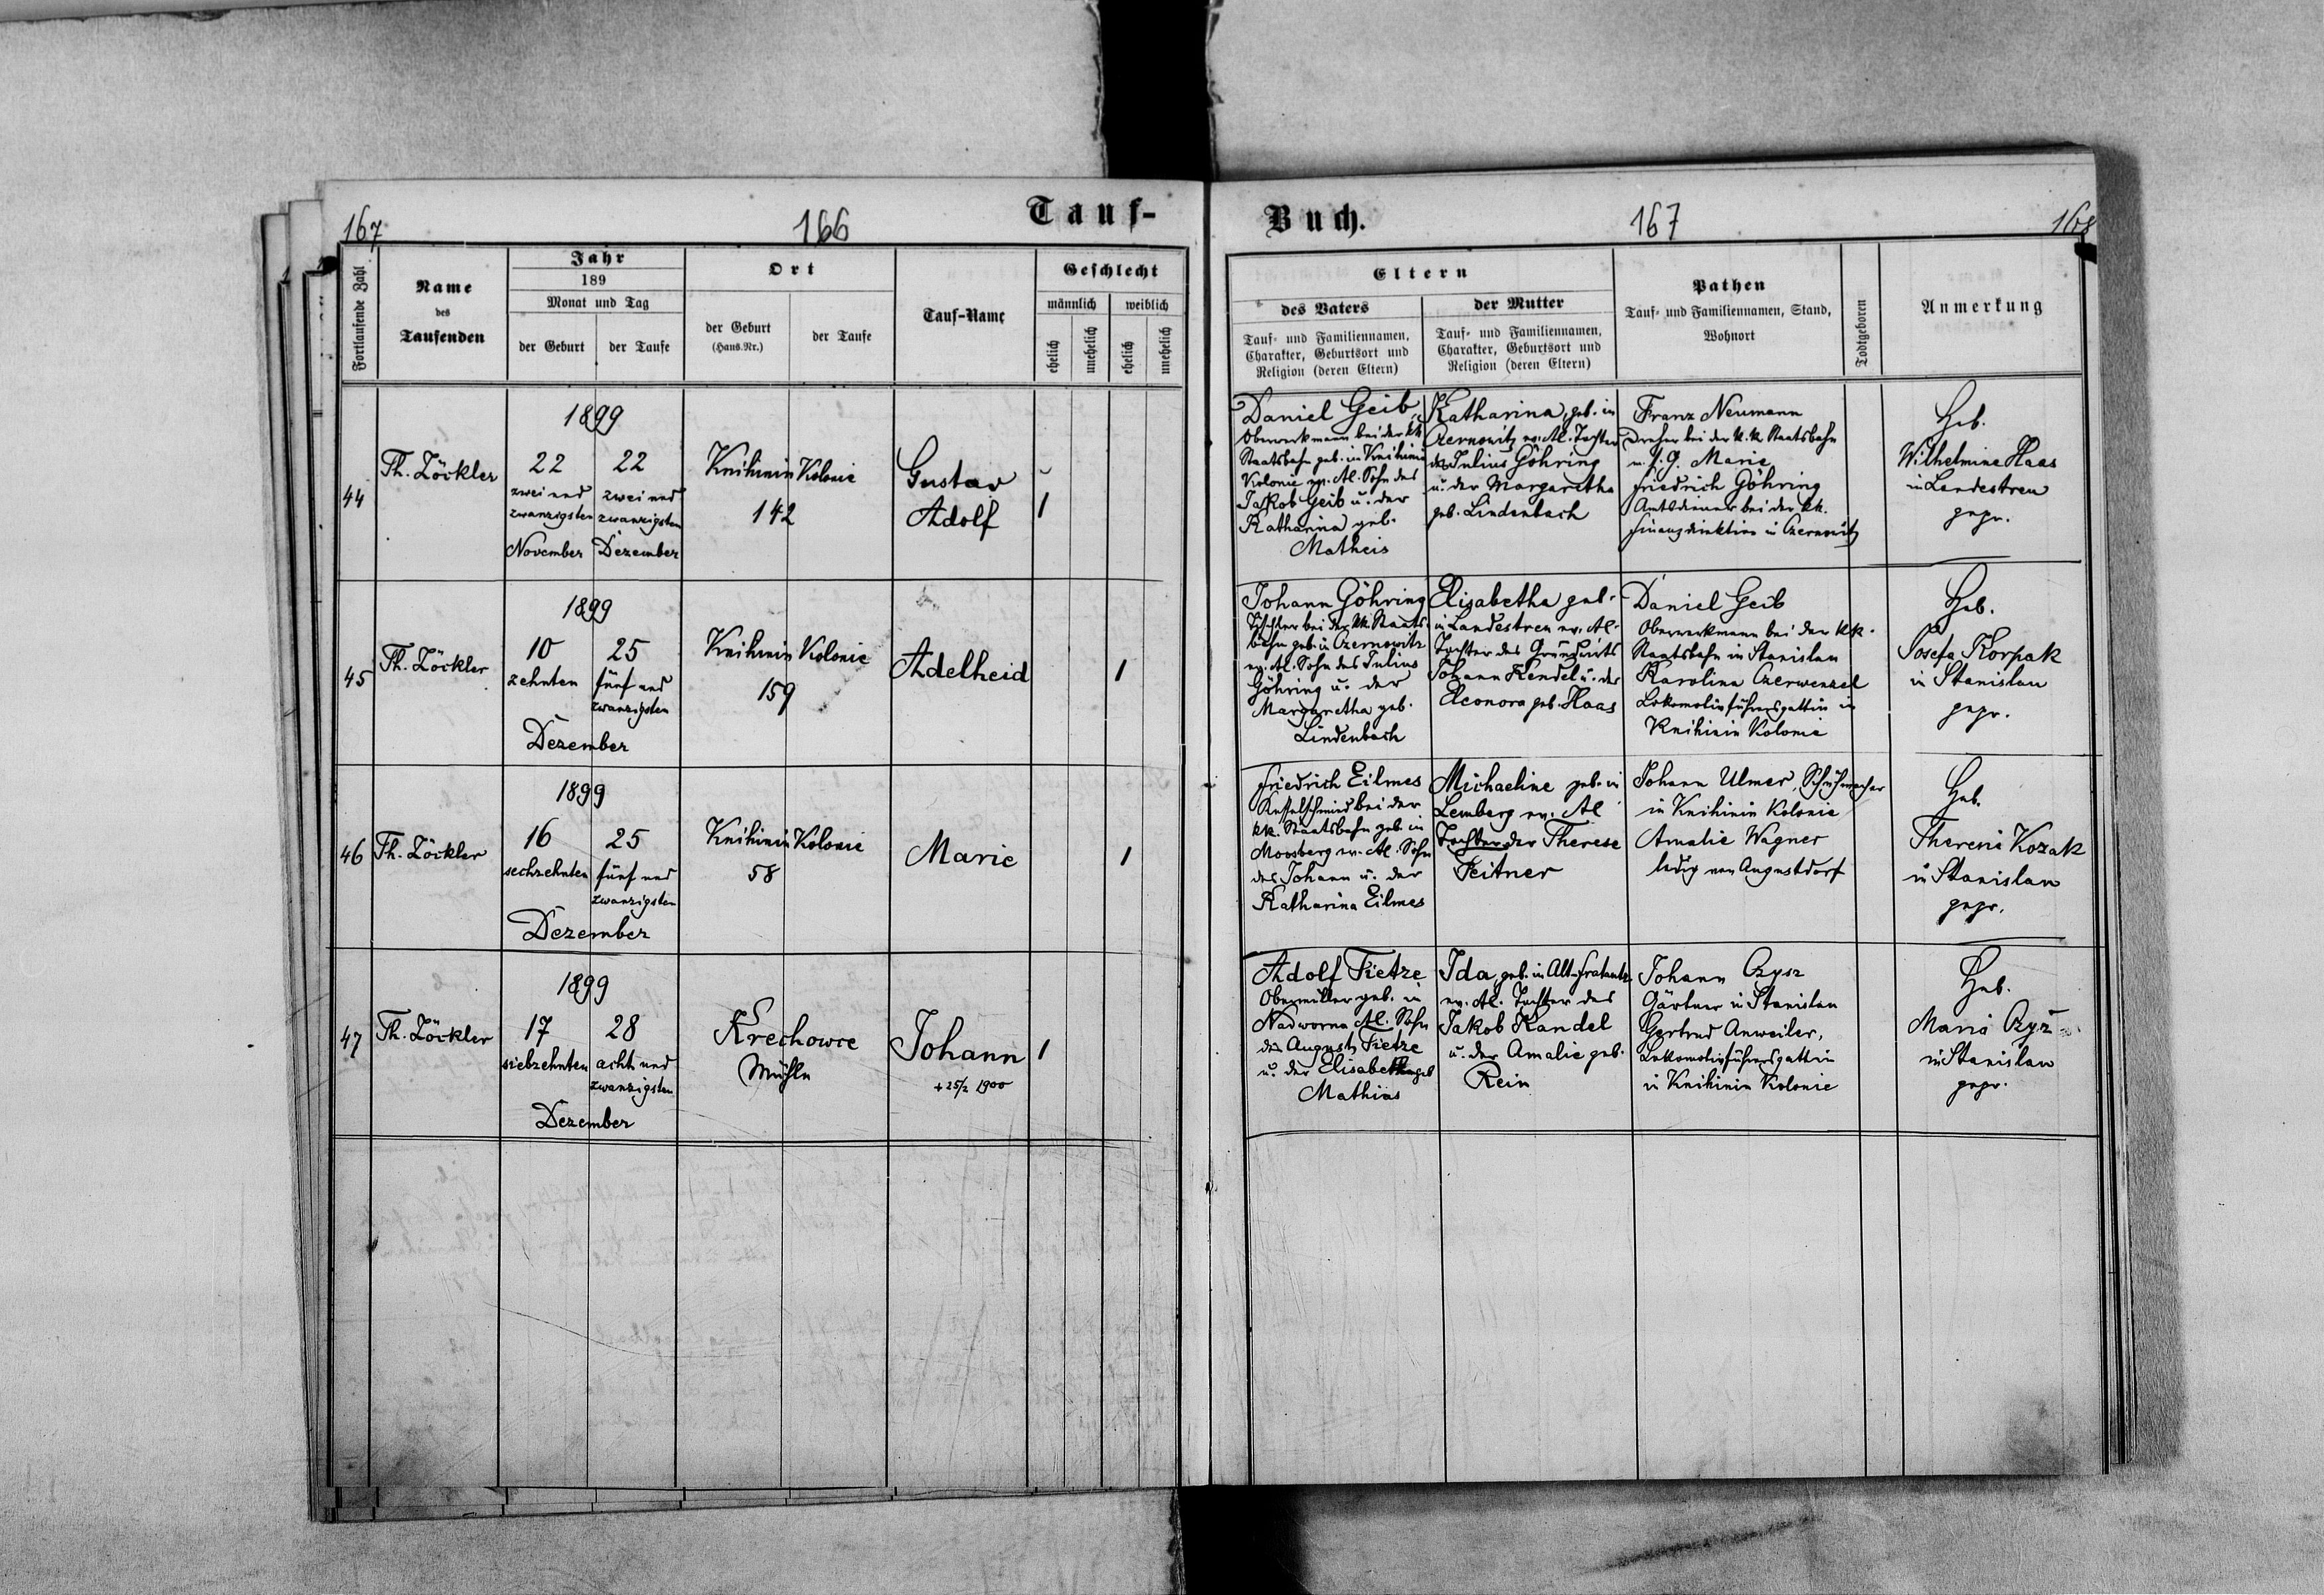 167
166
Tauf-
Fortlaufende Zahl
Name
des
Taufenden
Jahr
189
Monat und Tag
der Geburt
der Taufe
Ort
der Geburt
(Haus-Nr.)
der Taufe
Tauf-Name
Geschlecht
männlich
weiblich
ehelich
unehelich
ehelich
unehelich
44
Th. Zöckler
1899
22
zwei und
zwanzigsten
November
22
zwei und
zwanzigsten
Dezember
Knihinin Kolonie
142
Gustav
Adolf
1
45
Th. Zöckler
1899
10
zehnten
25
fünf und
zwanzigsten
Dezember
Knihinin Kolonie
159
Adelheid
1
46
Th. Zöckler
1899
16
sechzehnten
25
fünf und
zwanzigsten
Dezember
Knihinin Kolonie
58
Marie
1
47
Th. Zöckler
1899
17
siebzehnten
28
acht und
zwanzigsten
Dezember
Krechowce
Mühle
Johann
+ 25/2 1900
1
Buch.
167
168
Eltern
des Vaters
Tauf- und Familiennamen,
Charakter, Geburtsort und
Religion (deren Eltern)
der Mutter
Tauf- und Familiennamen,
Charakter, Geburtsort und
Religion (deren Eltern)
Pathen
Tauf- und Familiennamen, Stand,
Wohnort
Todtgeboren
Anmerkung
Daniel Geib,
Oberwerkmann bei der kk
Staatsbahn geb. in Knihinin
Kolonie ev. Al. Sohn des
Jakob Geib u. der
Katharina geb.
Matheis
Katharina, geb. in
Czernowitz ev. Al. Tochter
des Julius Göhring
u. der Margaretha
geb. Lindenbach
Franz Neumann
Dreher bei der k.k. Staatsbahn
m. s. G. Marie
Friedrich Göhring
Amtsdiener bei der kk.
Finanzdirektion in Czernowitz
Heb.
Wilhelmine Haas
in Landestreu
gepr.
Johann Göhring
Tischler bei der kk. Staats-
bahn geb. in Czernowitz
ev. Al. Sohn des Julius
Göhring u. der
Margaretha geb.
Lindenbach
Elisabetha geb.
in Landestreu ev. Al.
Tochter des Grundwirts
Johann Kendel u. der
Eleonora geb. Haas
Daniel Geib
Oberwerkmann bei der kk.
Staatsbahn in Stanislau
Karolina Czerwenzel
Lokomotivführersgattin in
Knihinin Kolonie
Heb.
Josefa Korpak
in Stanislau
gepr.
Friedrich Eilmes
Kesselschmied bei der
kk. Staatsbahn geb. in
Moosberg ev. Al. Sohn
des Johann u. der
Katharina Eilmes
Michaeline geb. in
Lemberg ev. Al
Tochter der Therese
Peitner
Johann Ulmer, Schuhmacher
in Knihinin Kolonie
Amalie Wagner
ledig von Augustdorf
Heb.
Theresia Kozak
in Stanislau
gepr.
Adolf Tietze
Obermüller geb. in
Nadworna Al. Sohn
des August Tietze
u. der Elisabetha geb
Mathias
Ida geb. in Alt-Fratautz
ev. Al. Tochter des
Jakob Kandel
u. der Amalie geb.
Rein
Johann Czysz
Gärtner in Stanislau
Gertrud Anweiler,
Lokomotivführersgattin
in Knihinin Kolonie
Heb.
Maria
in Stanislau
gepr.